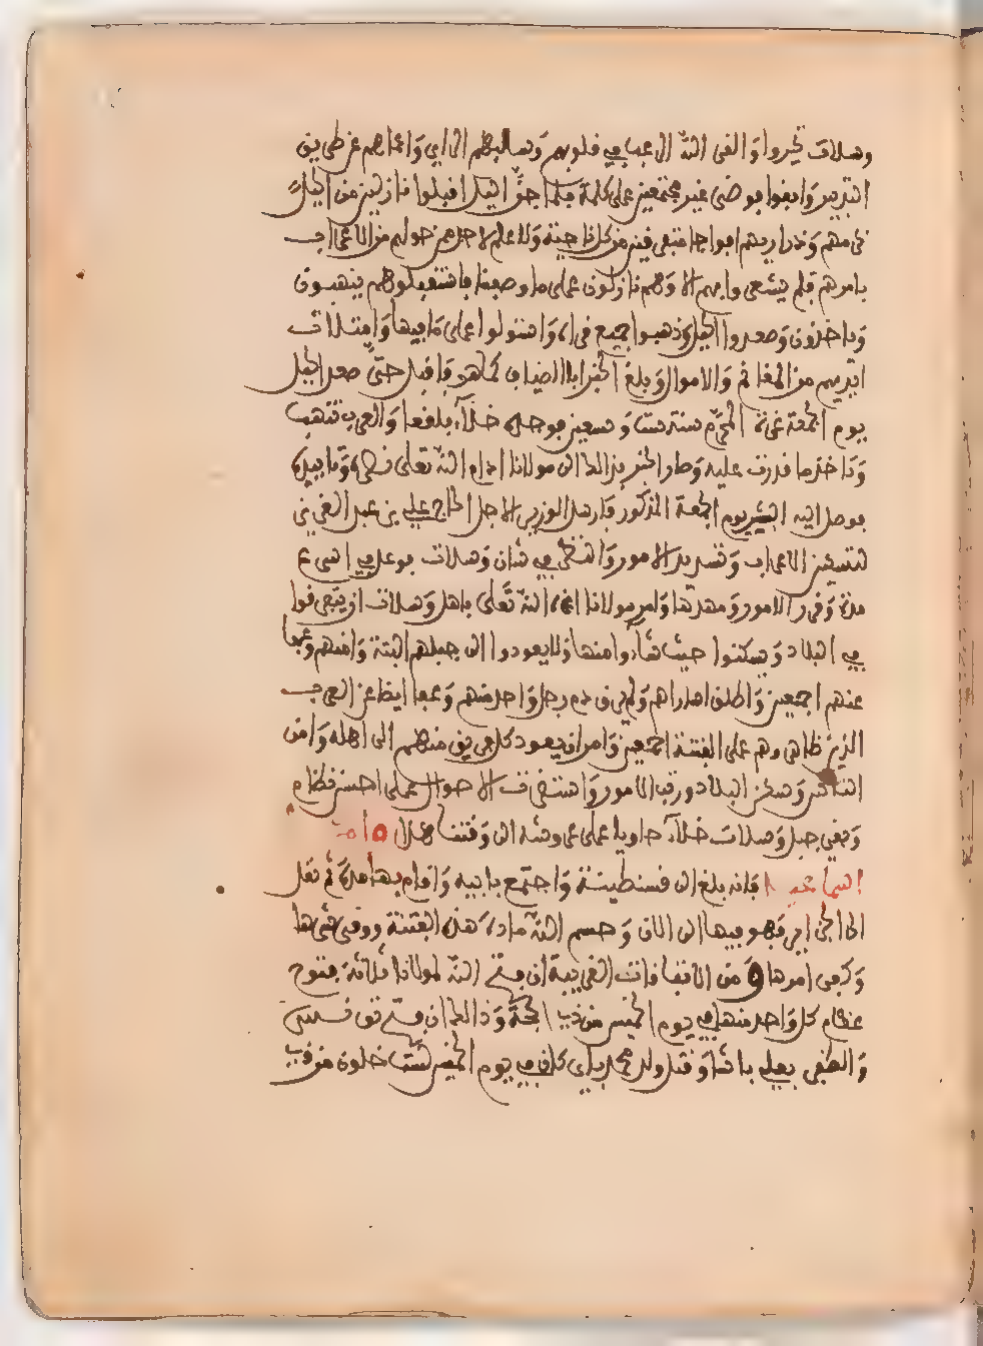 وسلات تحيروا وألقى الله الرعب في قلوبهم وسالبهم الراي وأعماهم عن طريق
التدبير وابقوا فوضى غير مجتمعين على كلمة فلما جن الليل اقبلوا نازلين من الجبل
نسايهم وذراريهم افواجا متفرقين من كل ناحية ولا علم لاحد ممن حولهم من الاعراب
بامرهم فلم يشعروا بهم الا وهم نازلون على ما وصفنا فاستقبلوهم ينهبون
وياخذون وصعدوا الجبل وذهبوا جميع قراه واستولوا على ما فيها وامتلات
ايديهم من المغانم والاموال وبلغ الخبر ابا الضياف كاهية فاقبل حتى صعد الجبل
يوم الجمعة غرة المحرم سنة ست وسبعين فوجده خلاء بلقعا والعرب تنهب
وتاخذ ما قدرت عليه وطار الخبر بذالك الى مولانا ادام الله تعالى نصره وتاييده
فوصل اليه البشير يوم الجمعة المذكور فارسل الوزير الاجل الحاج علي بن عبد العزيز
لتسكين الاعراب وتسديد الامور والنظر في شان وسلات فوعد في اسرع
مدة وقرر الامور ومهدها وامر مولانا ايده الله تعالى باهل وسلات ان يتفرقوا
في البلاد ويسكنوا حيث شاءوا منها ولا يعودوا الى جبلهم البتة وامنهم وعفا
عنهم اجمعين واطلق اسراهم ولم يرق دم رجل واحد منهم وعفا ايضا عن العرب
الذين ظاهروهم على الفتنة اجمعين وامر ان يعود كل فريق منهم الى اهله وامن
الناس وسكن البلاد ورتب الامور واستقرت الاحوال على احسن نظام
وبقي جبل وسلات خلاء خاويا على عروشه الى وقتنا هذا واما
اسماعيل فانه بلغ الى قسنطينة واجتمع بابيه واقام بها مدة ثم نقل
الى الجزاير فهو فيها الى الان وحسم الله مادة هذه الفتنة ووقى شرها
وكفى امرها ومن الاتفاقات الغريبة ان فتح الله لمولانا ثلاثة فتوح
عظام كل واحد منها في يوم الخميس من ذي الحجة وذالك ان فتح تونس
والظفر بعلي باشا وقتل ولده محمد باي كان في يوم الخميس لست خلون من ذي